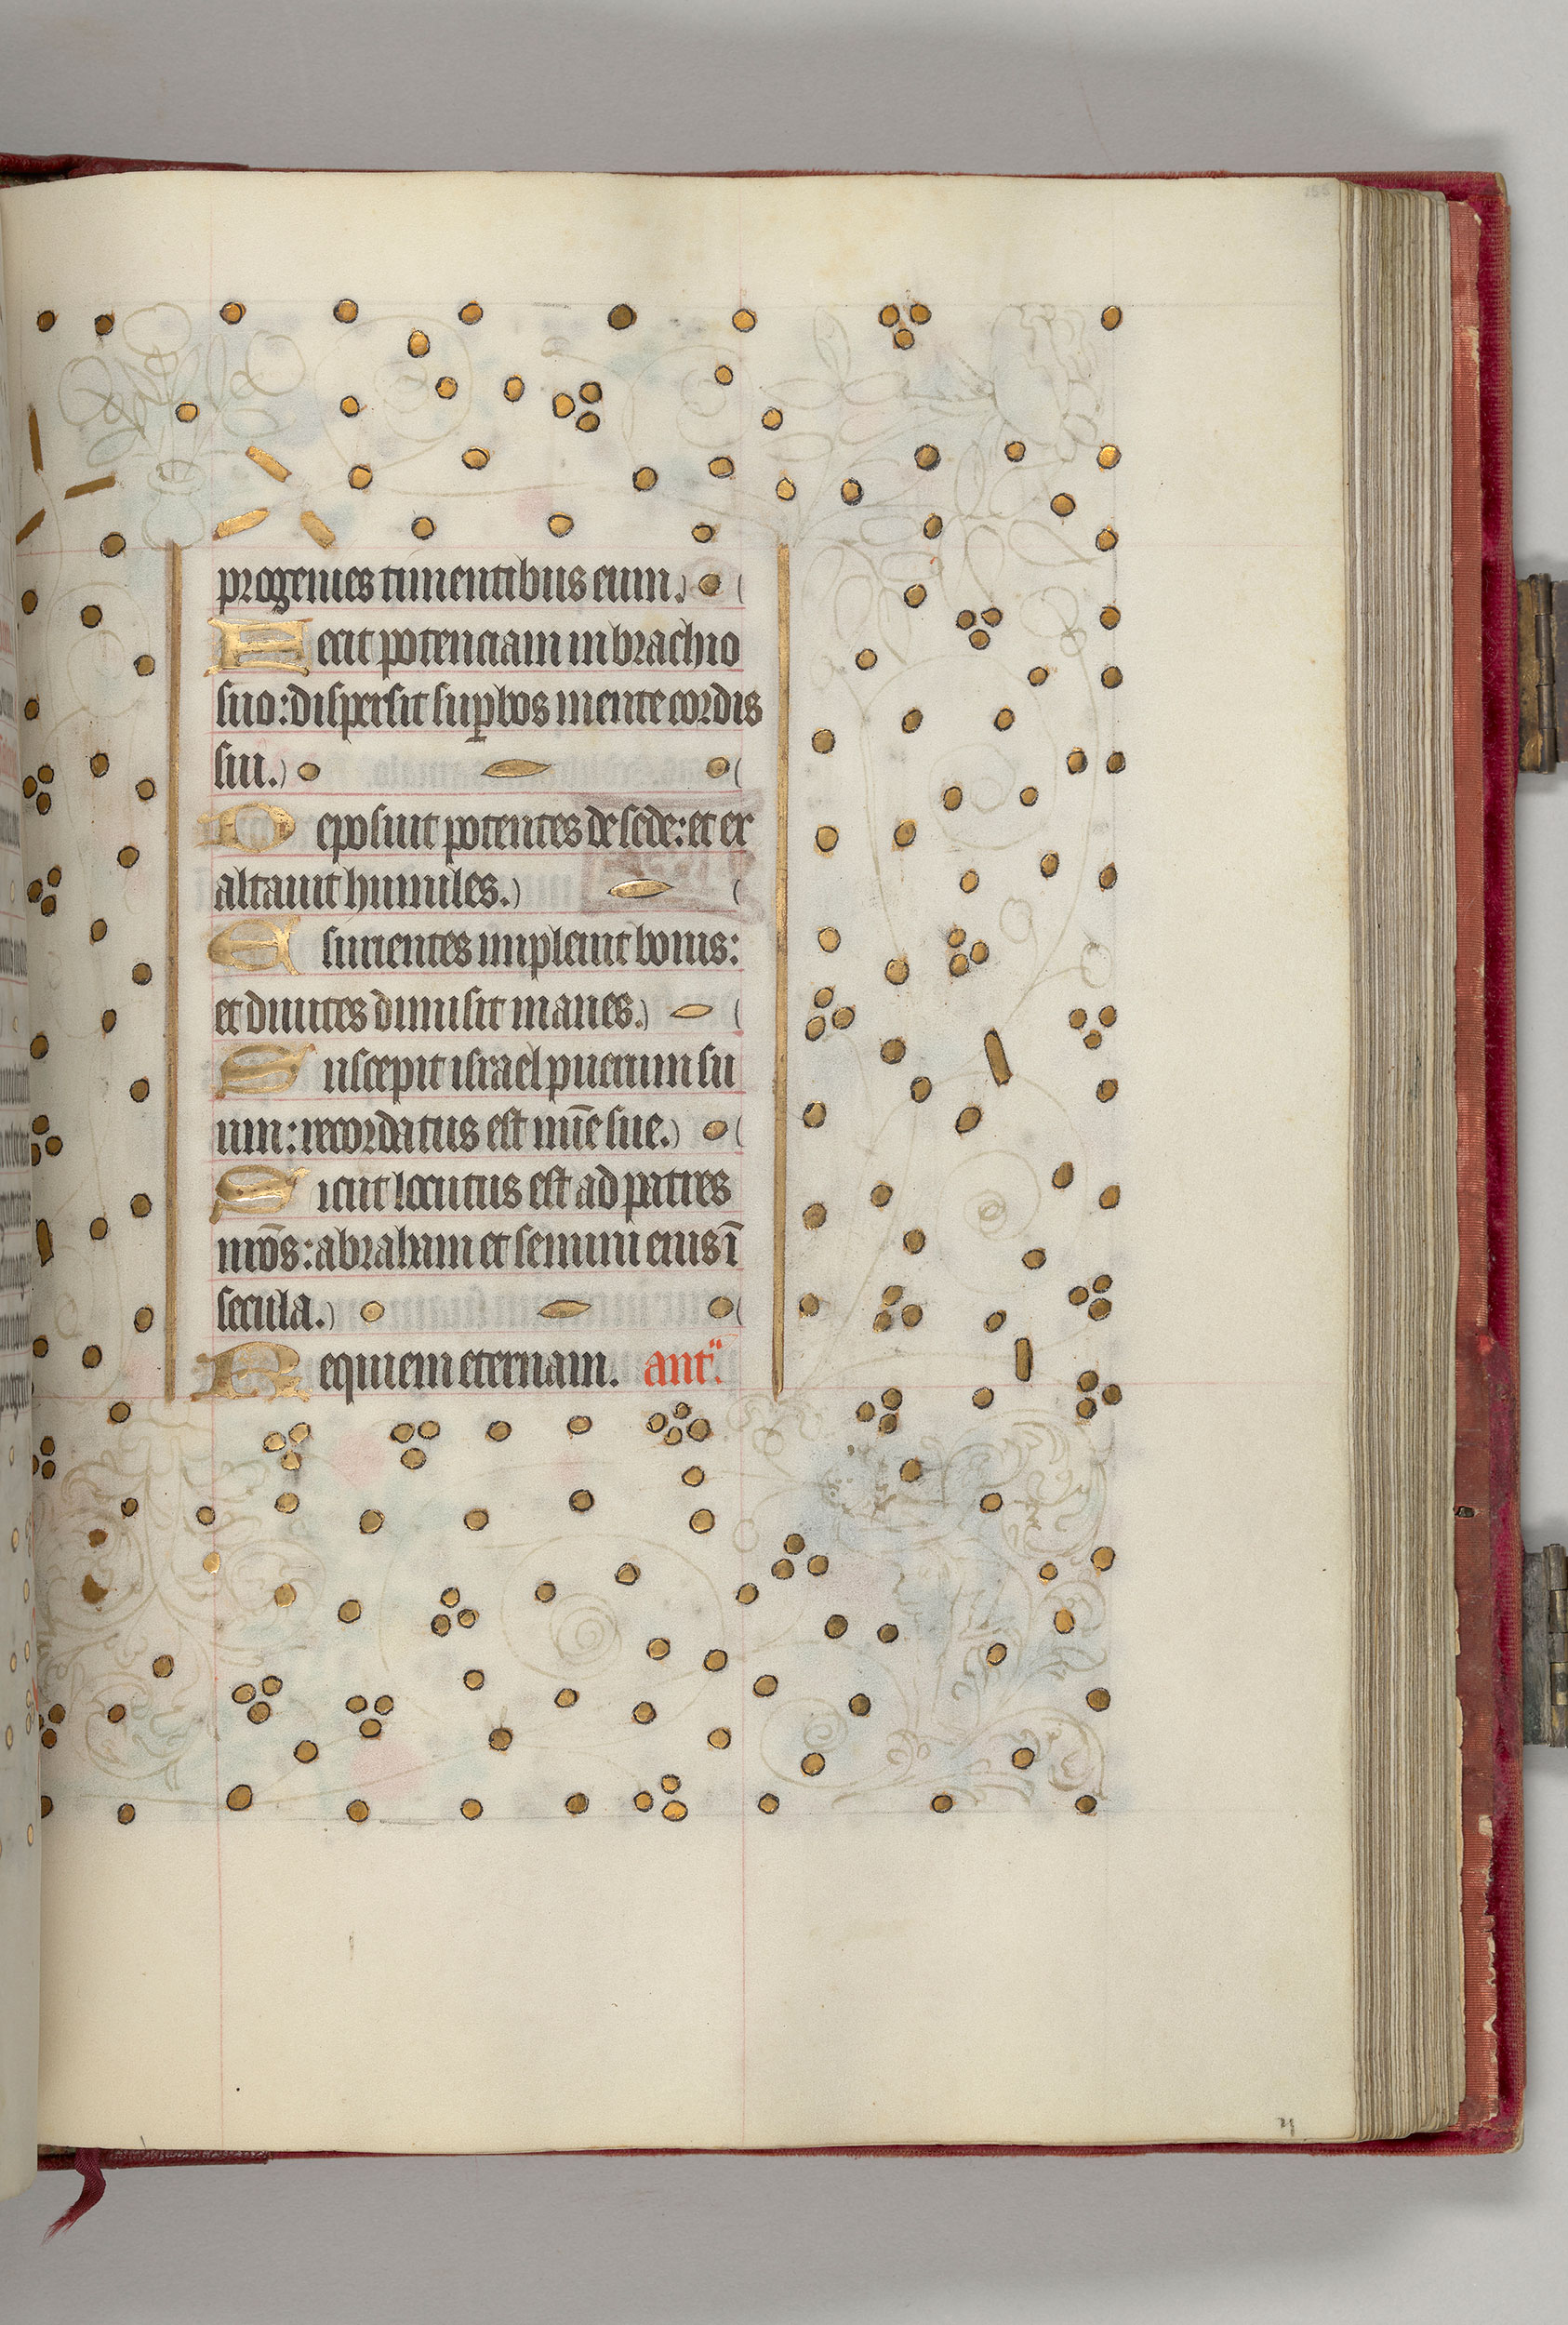 progenies timentibus eum.
Fecit potenciam in brachio
suo: dispersit sup̱bos mente cordis
sui.
Deposuit potentes de sede: et ex
altauit humiles.
Esurientes impleuit bonis:
et diuites dimisit inanes.
Suscepit israel puerum su
um: recordatus est mīe sue.
Sicut locutus est ad patres
nr̄os: abraham et semini eius ī
secula.
Requiem eternam. ant